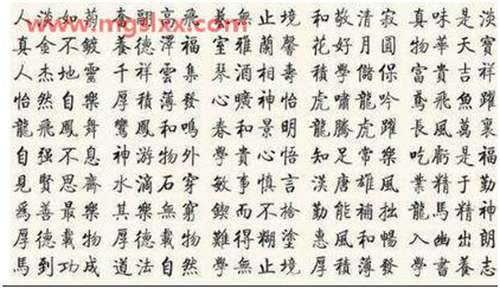 www.mgslxx.com
人淡如菊 高飛 無止境 和敬清寂 真味是淡
真金不鍍 厚德澤福 室雅蘭馨 花好月圓 物華天寶
人杰地靈 千祥雲集 琴酒相壽 積學儲保 富貴吉祥
怡然自樂 厚積薄發 心曠神怡 虎嘯龍吟 鳶飛魚躍
龍飛鳳舞 鸞鳳和鳴 春和景明 龍騰虎躍 長風萬裏
自强不息 神游物外 和貴心悟 知足常樂 吃虧是福
見賢思齊 水滴石穿 敏事慎言 漢唐雄風 業精于勤
爲善最樂 其樂無窮 鍥而不捨 勤能補拙 龍馬精神
厚德載物 厚德載物 難得糊塗 惠風和暢 入幽出朗
馬到功成 道法自然 學無止境 厚積薄發 學書養志